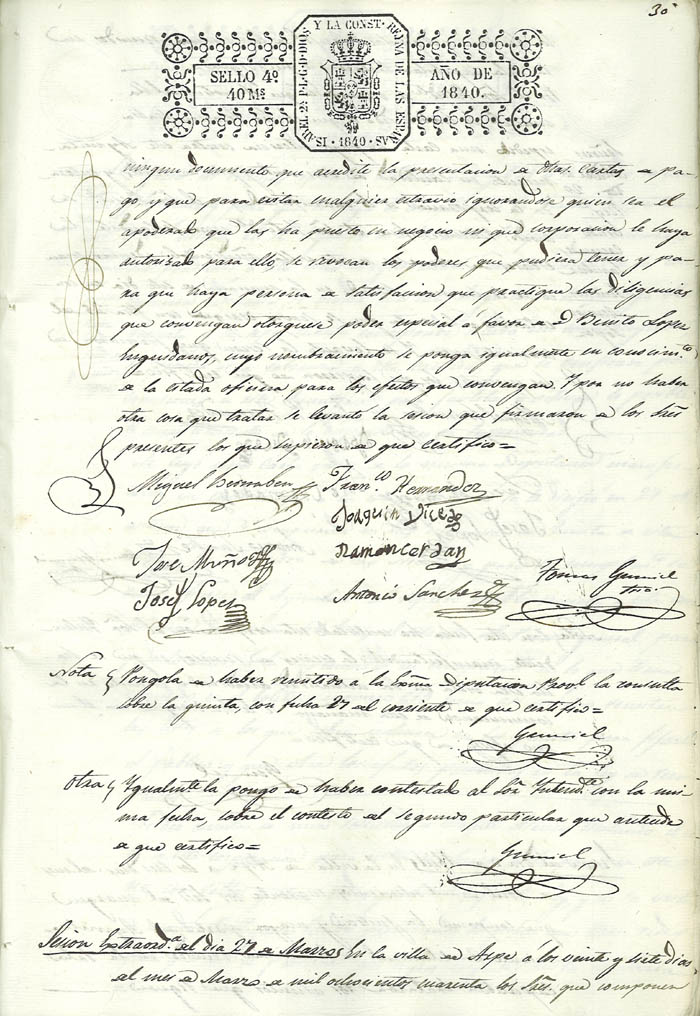 30
ISABEL 2ª P.L.G.D DIOS Y LA CONST. REYNA DE LAS ESPAÑAS
· 1840 ·
SELLO 4º
40 Mˢ
AÑO DE
1840.
ningun documento que acredite la presentacion de dhas. Cartas de pa-
go, y que para evitar cualquier extravio ignorandose quien sea el
apoderado que las ha puesto en negocio ni que corporacion le haya
autorizado para ello, se revocan los poderes que pudiera tener y pa-
ra que haya persona de satisfacion que practique las diligencias
que convengan otorguese poder especial á favor de D Benito Lopez
Enguidanos, cuyo nombramiento se ponga igualmente en conocim.ᵗᵒ
de la citada oficina para los efectos que convengan. Y por no haber
otra cosa que tratar se levantó la sesion que firmaron de los Sres
presentes los que supieron de que certifico=
Miguel Bernabeu Fran.ᶜᵒ Hernandez
Joaquin Vicedo
Jose Muñoz Ramon Cerdan
Josef Lopez Antonio Sanchez Tomas Gumiel
Srio.
Nota Pongola de haber remitido á la Exma Diputacion Prov.ˡ la consulta
sobre la quinta, con fecha 27 del corriente de que certifico=
Gumiel
Otra Ygualmte la pongo de haber contestado al Sor Yntend.ᵗᵉ con la mis-
ma fecha, sobre el contesto del segundo particular que antecede
de que certifico=
Gumiel
Sesion Extraord.ᵃ del dia 27 de Marzo En la villa de Aspe á los veinte y siete dias
del mes de Marzo de mil ochocientos cuarenta los Sres. que componen